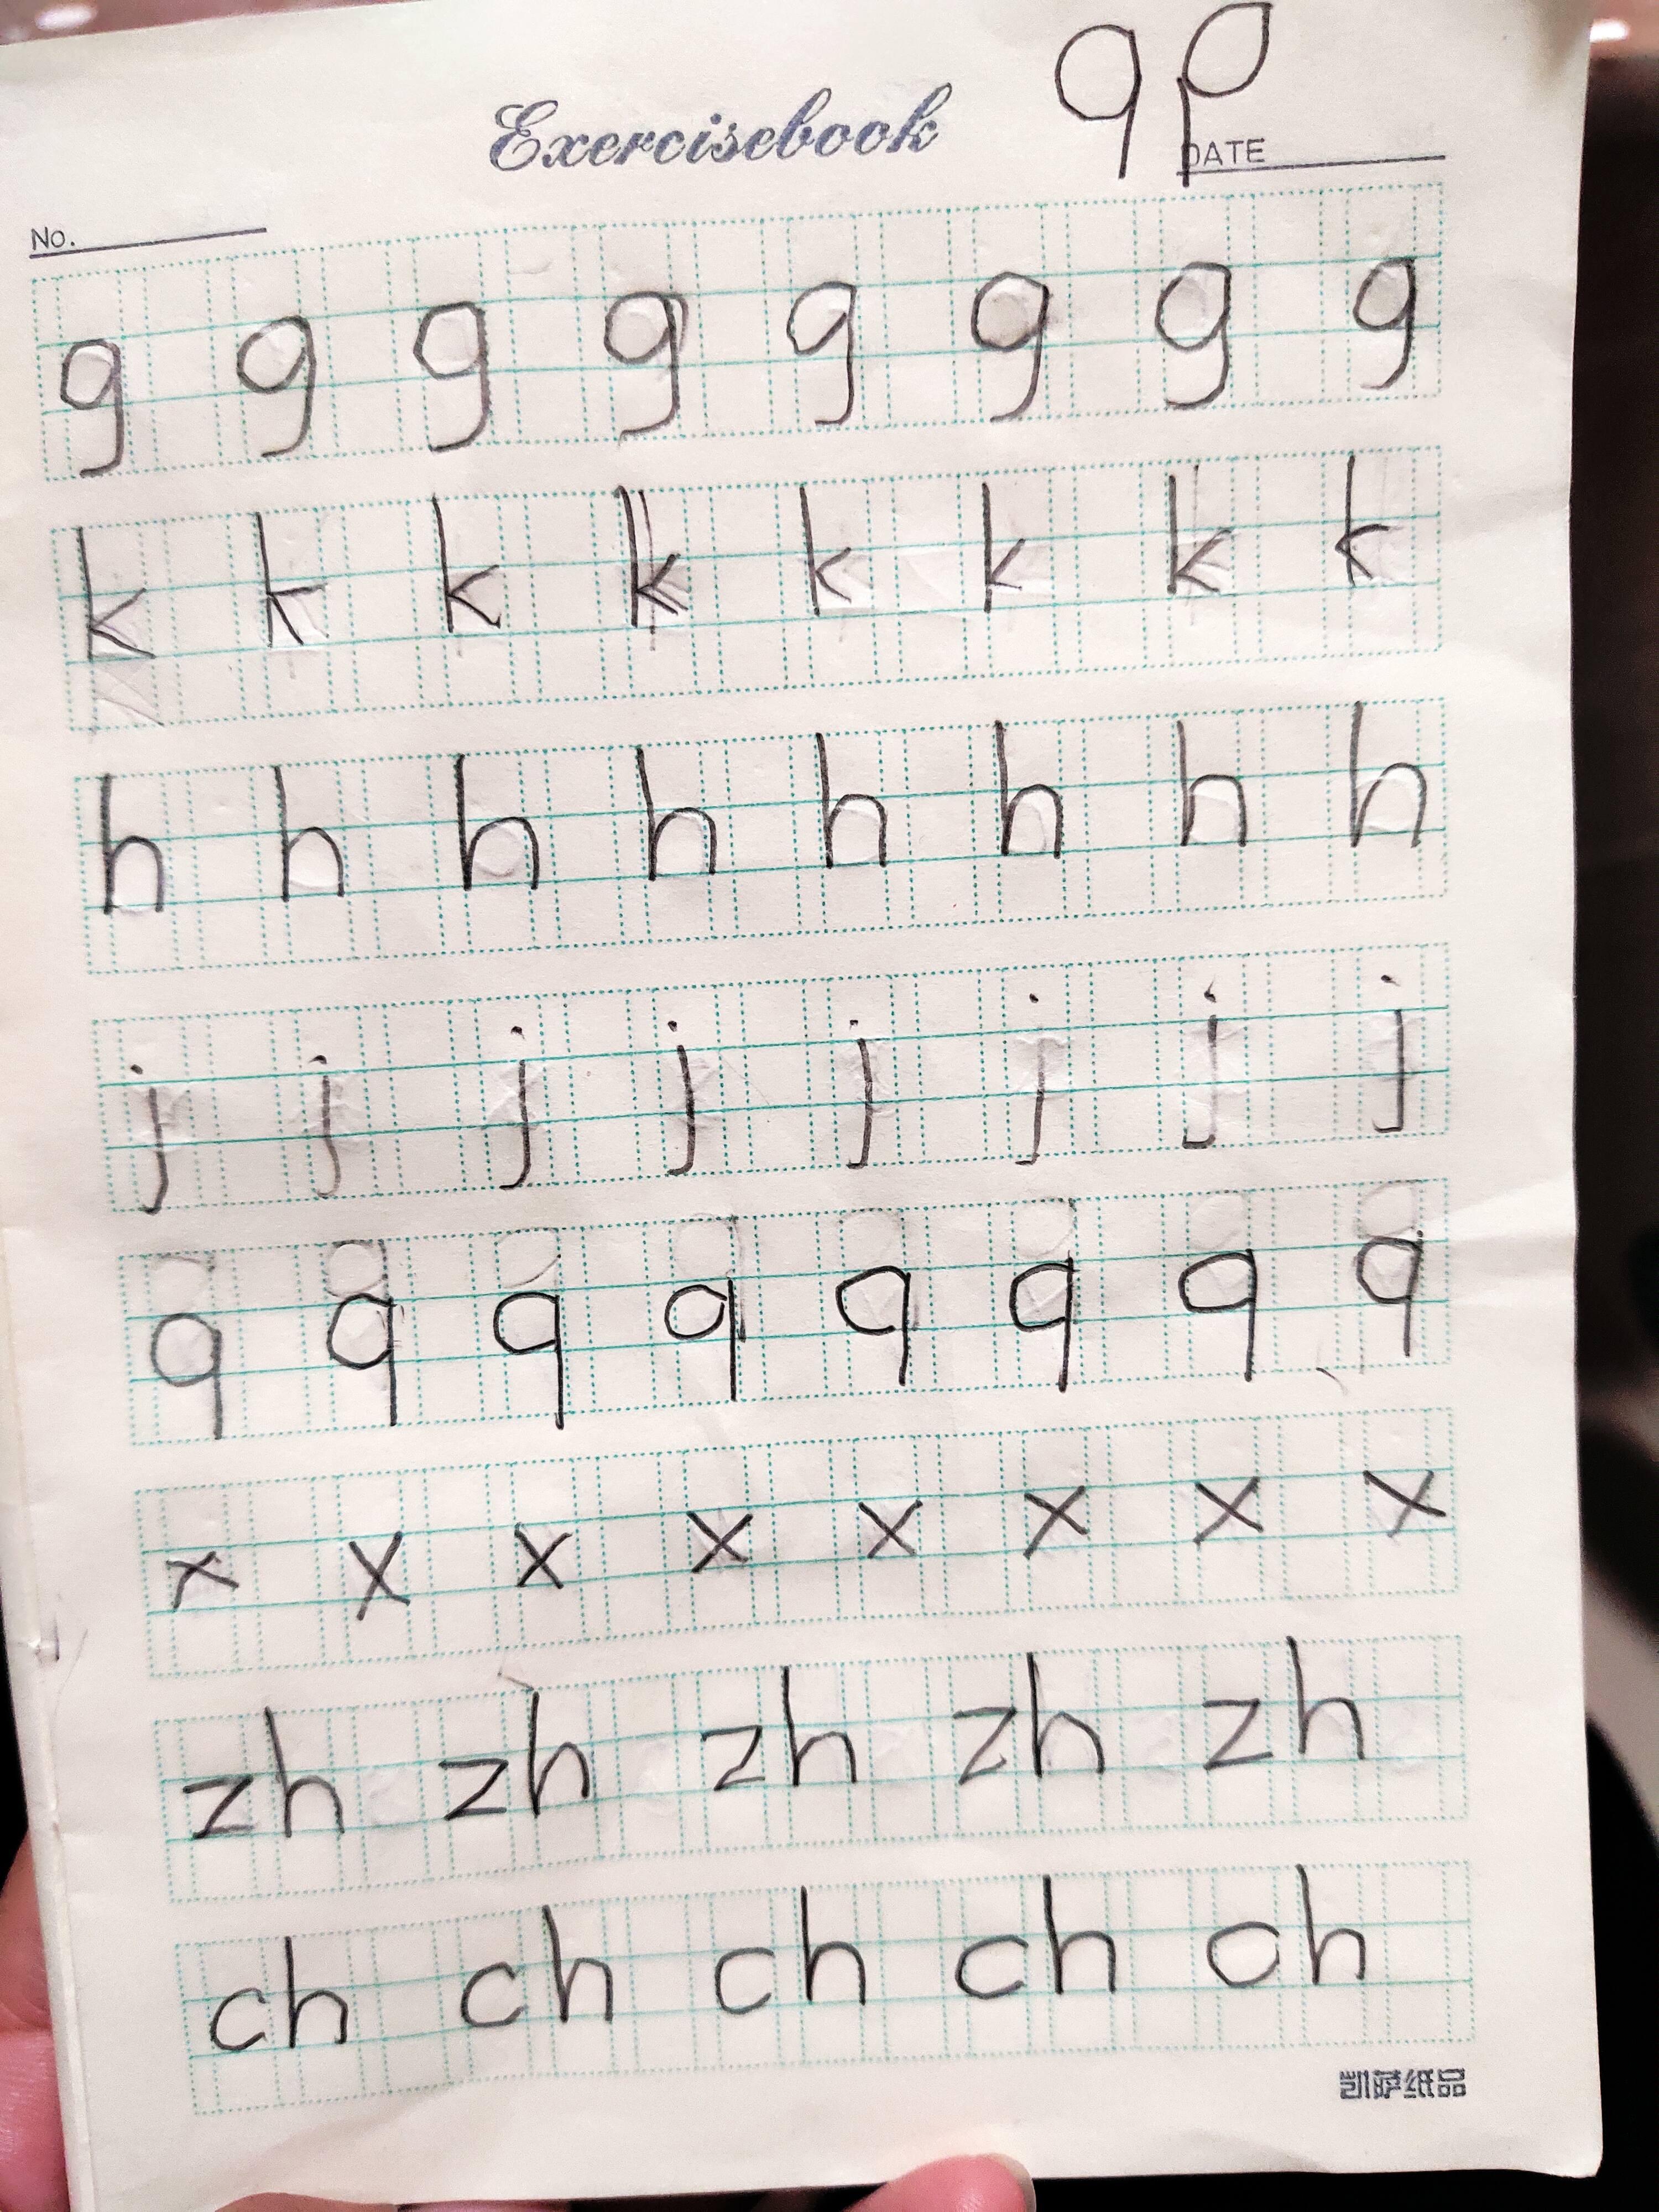 q p
Exercisebook
DATE
No.
g g g g g g g g
k k k k k k k k
h h h h h h h h
j j j j j j j j
q q q q q q q q
x x x x x x x x
zh zh zh zh zh
ch ch ch ch ch
凯萨纸品